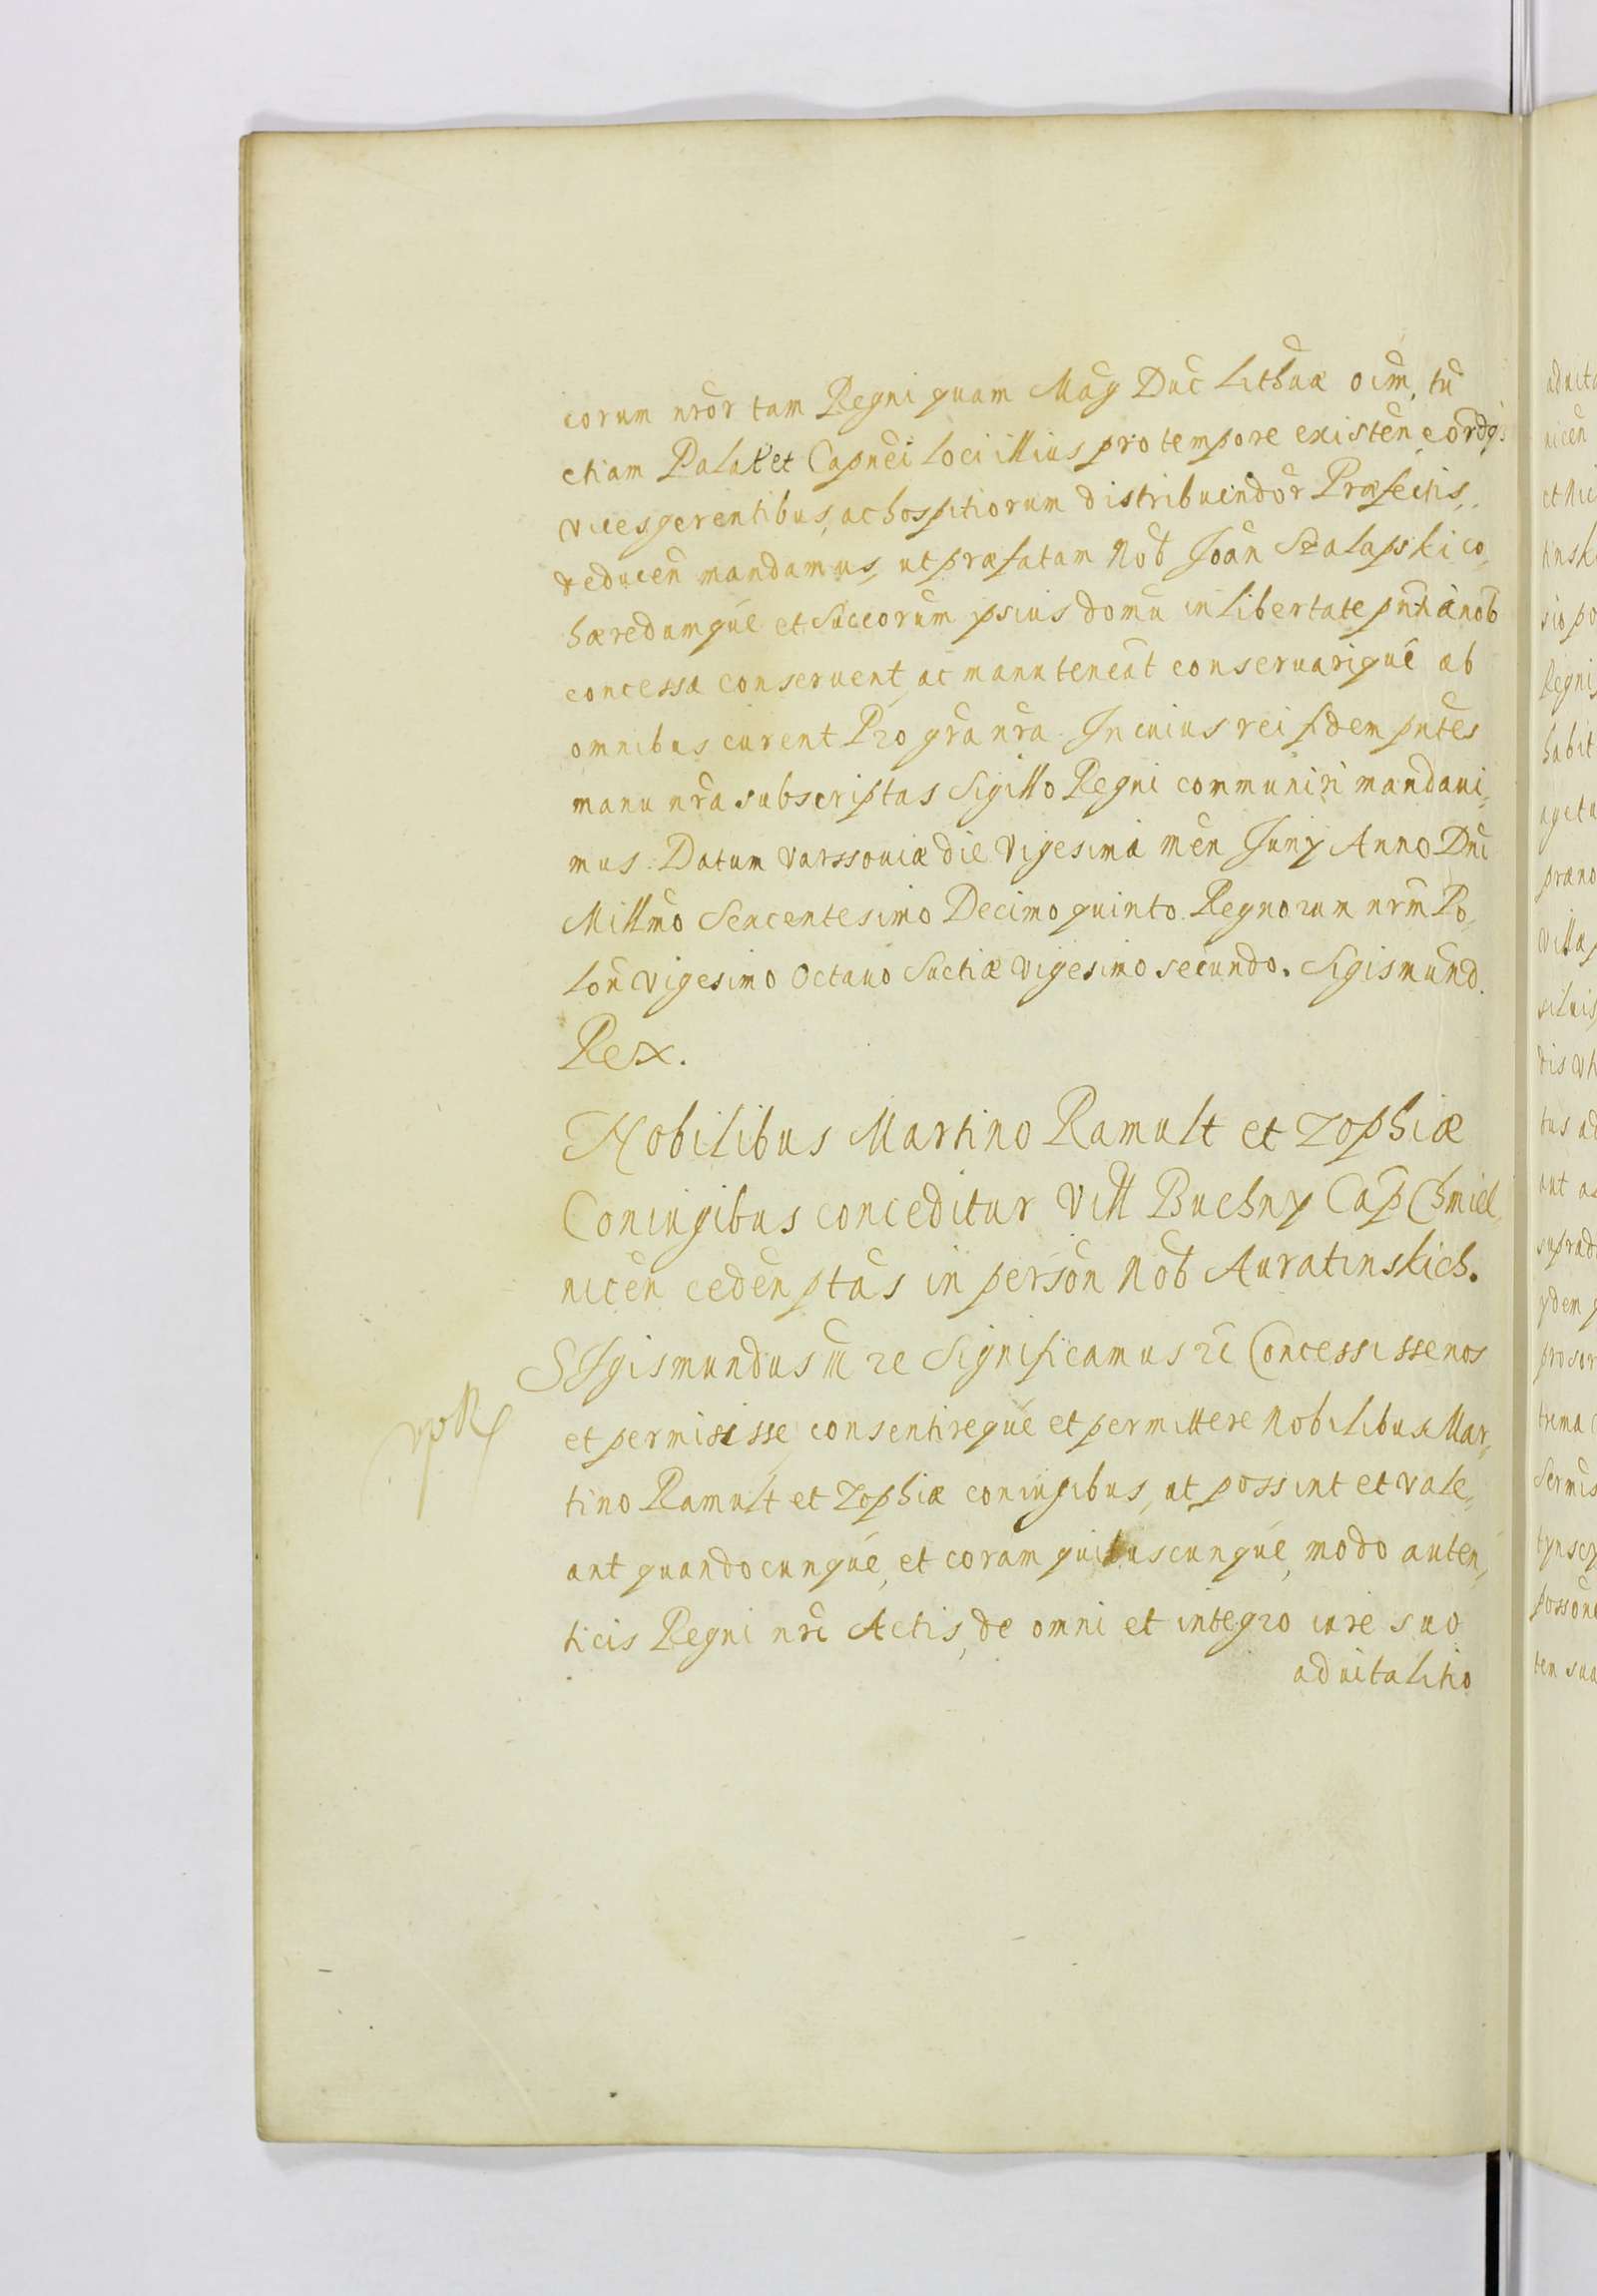 corum nror tam Regni quam Mag Duc Lithuæ oim, tu
etiam Palat et Capnei loci illius pro tempore existen, eordq;
vices gerentibus, ac hospitiorum distribuendor Præfectis,
reducen mandamus, ut præfatam Nob Joan Szalapski co,
hæredumque et Succorum ipsius domu in libertate pnti a nob
concessa conseruent, ac manuteneat conseruarique ab
omnibus curent Pro gra nra. In cuius rei fidem pntes
manu nra subscriptas Sigillo Regni communiri mandaui,
mus. Datum Varssouiæ die Vigesima men Juny Anno Dni
Millmo Sexcentesimo Decimo quinto. Regnorum nrm Po,
lon Vigesimo Octauo Suetiæ Vigesimo secundo. Sigismund.
Rex.
Nobilibus Martino Ramult et Zophiæ
Coniugibus conceditur Vill Buchny Cap Chmiel,
nicen ceden ptas in person Nob Auratinskich.
SIgismundus III re Significamus re Concessisse nos
et permisisse consentireque et permittere Nobilibus Mar,
tino Ramult et Zophiæ coniugibus, ut possint et vale,
ant quandocunque, et coram quibuscunque, modo auten,
ticis Regni nri Actis, de omni et integro iure suo
aduitalitio